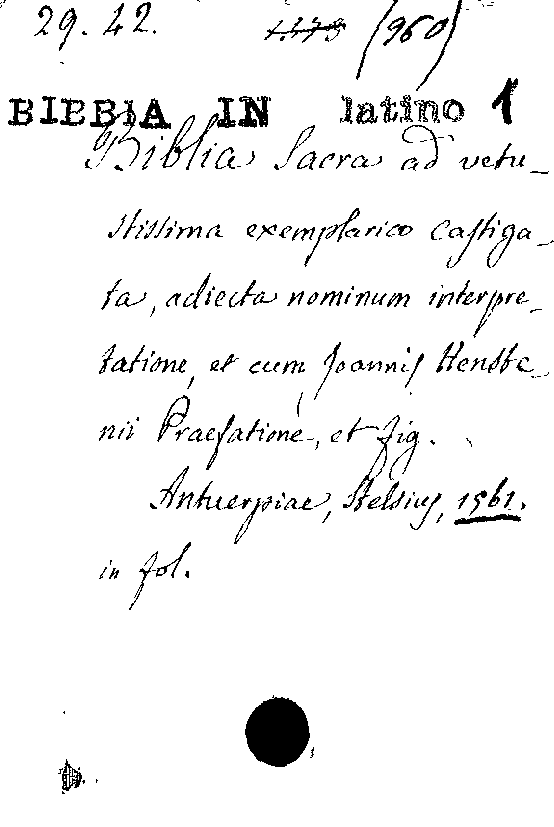 29. 42. 1.173 (960)
BIBBIA IN latino 1
Biblia Sacra ad vetu-
stissima exemplaria castiga-
ta, adiecta nominum interpre-
tatione, et cum Joannis Hensbe-
nii Praefatione, et fig.
Antuerpiae, Stelsius, 1561.
in fol.